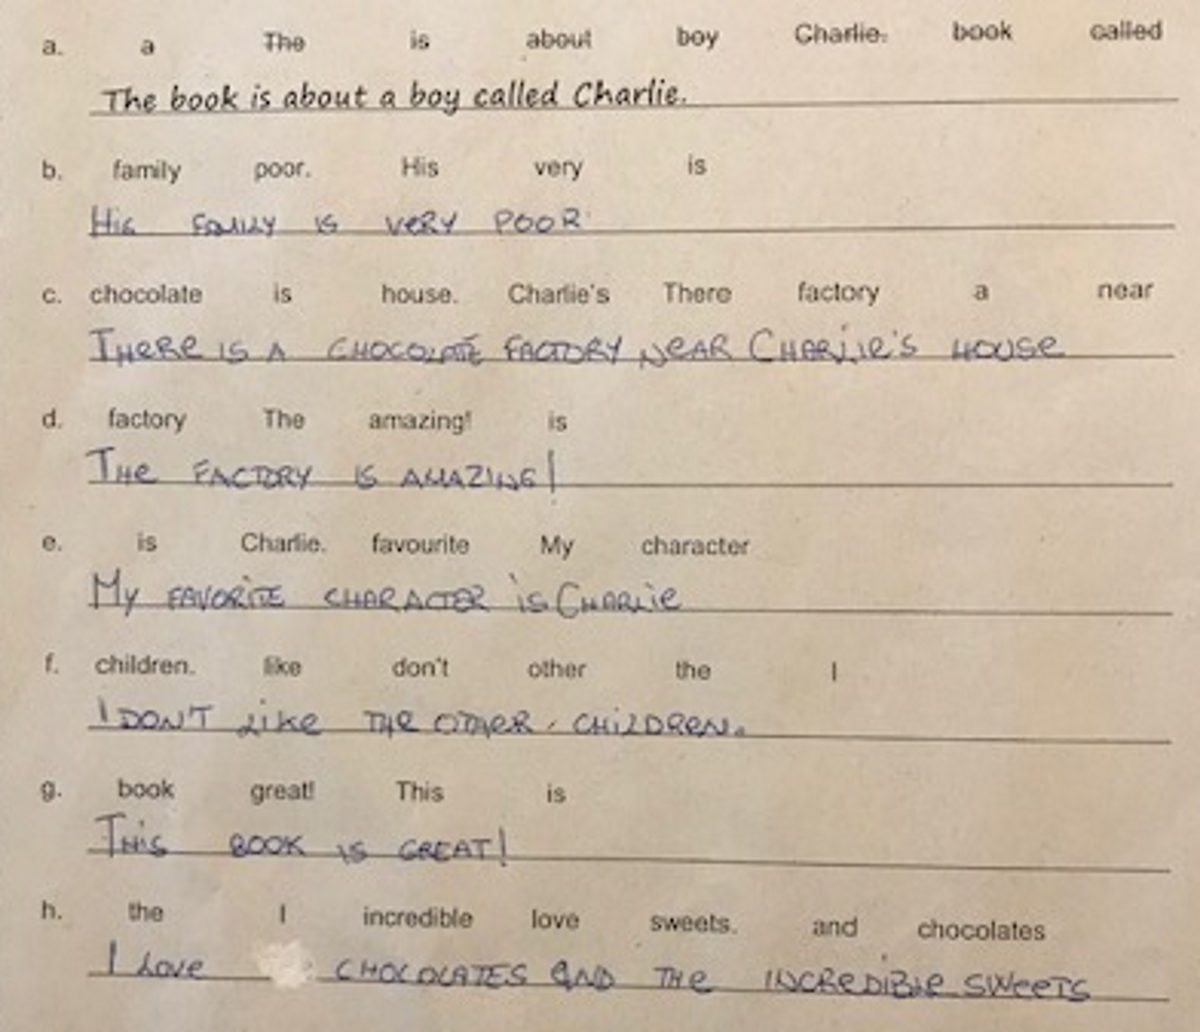 a. a The is about boy Charlie. book called
The book is about a boy called Charlie.
b. family poor. His very is
His FAMILY IS VERY POOR
c. chocolate is house. Charlie's There factory a near
THERE IS A CHOCOLATE FACTORY NEAR CHARLIE'S HOUSE
d. factory The amazing! is
THE FACTORY IS AMAZING!
e. is Charlie. favourite My character
MY FAVORITE CHARACTER is CHARLIE
f. children. like don't other the I
I DON'T LIKE THE OTHER CHILDREN.
g. book great! This is
THIS BOOK IS GREAT!
h. the I incredible love sweets. and chocolates
I LOVE CHOCOLATES AND THE INCREDIBLE SWEETS